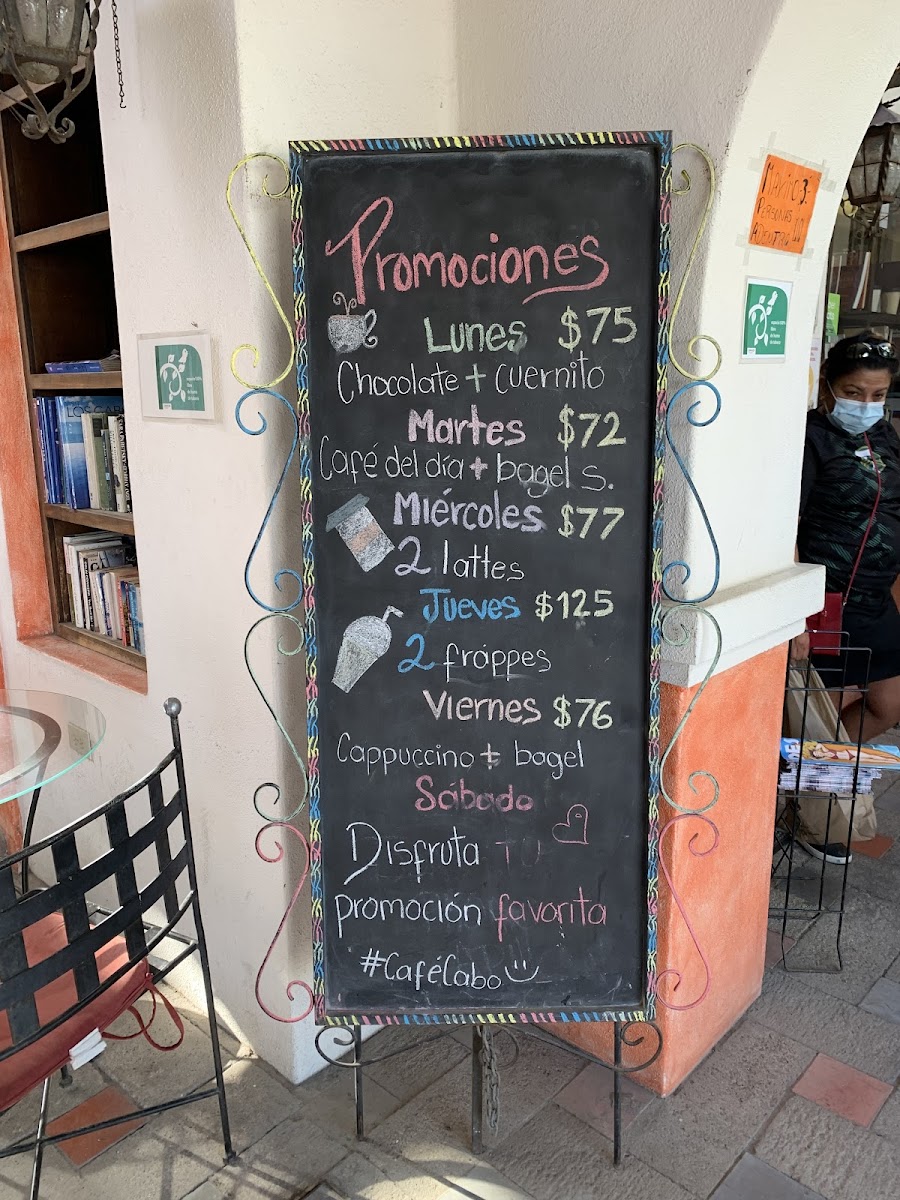 Promociones
Lunes $75
Chocolate + cuernito
Martes $72
Café del día + bagel s.
Miércoles $77
2 lattes
Jueves $125
2 frappes
Viernes $76
Cappuccino + bagel
Sábado
Disfruta TU
promoción favorita
#CaféCabo
PERSONAS